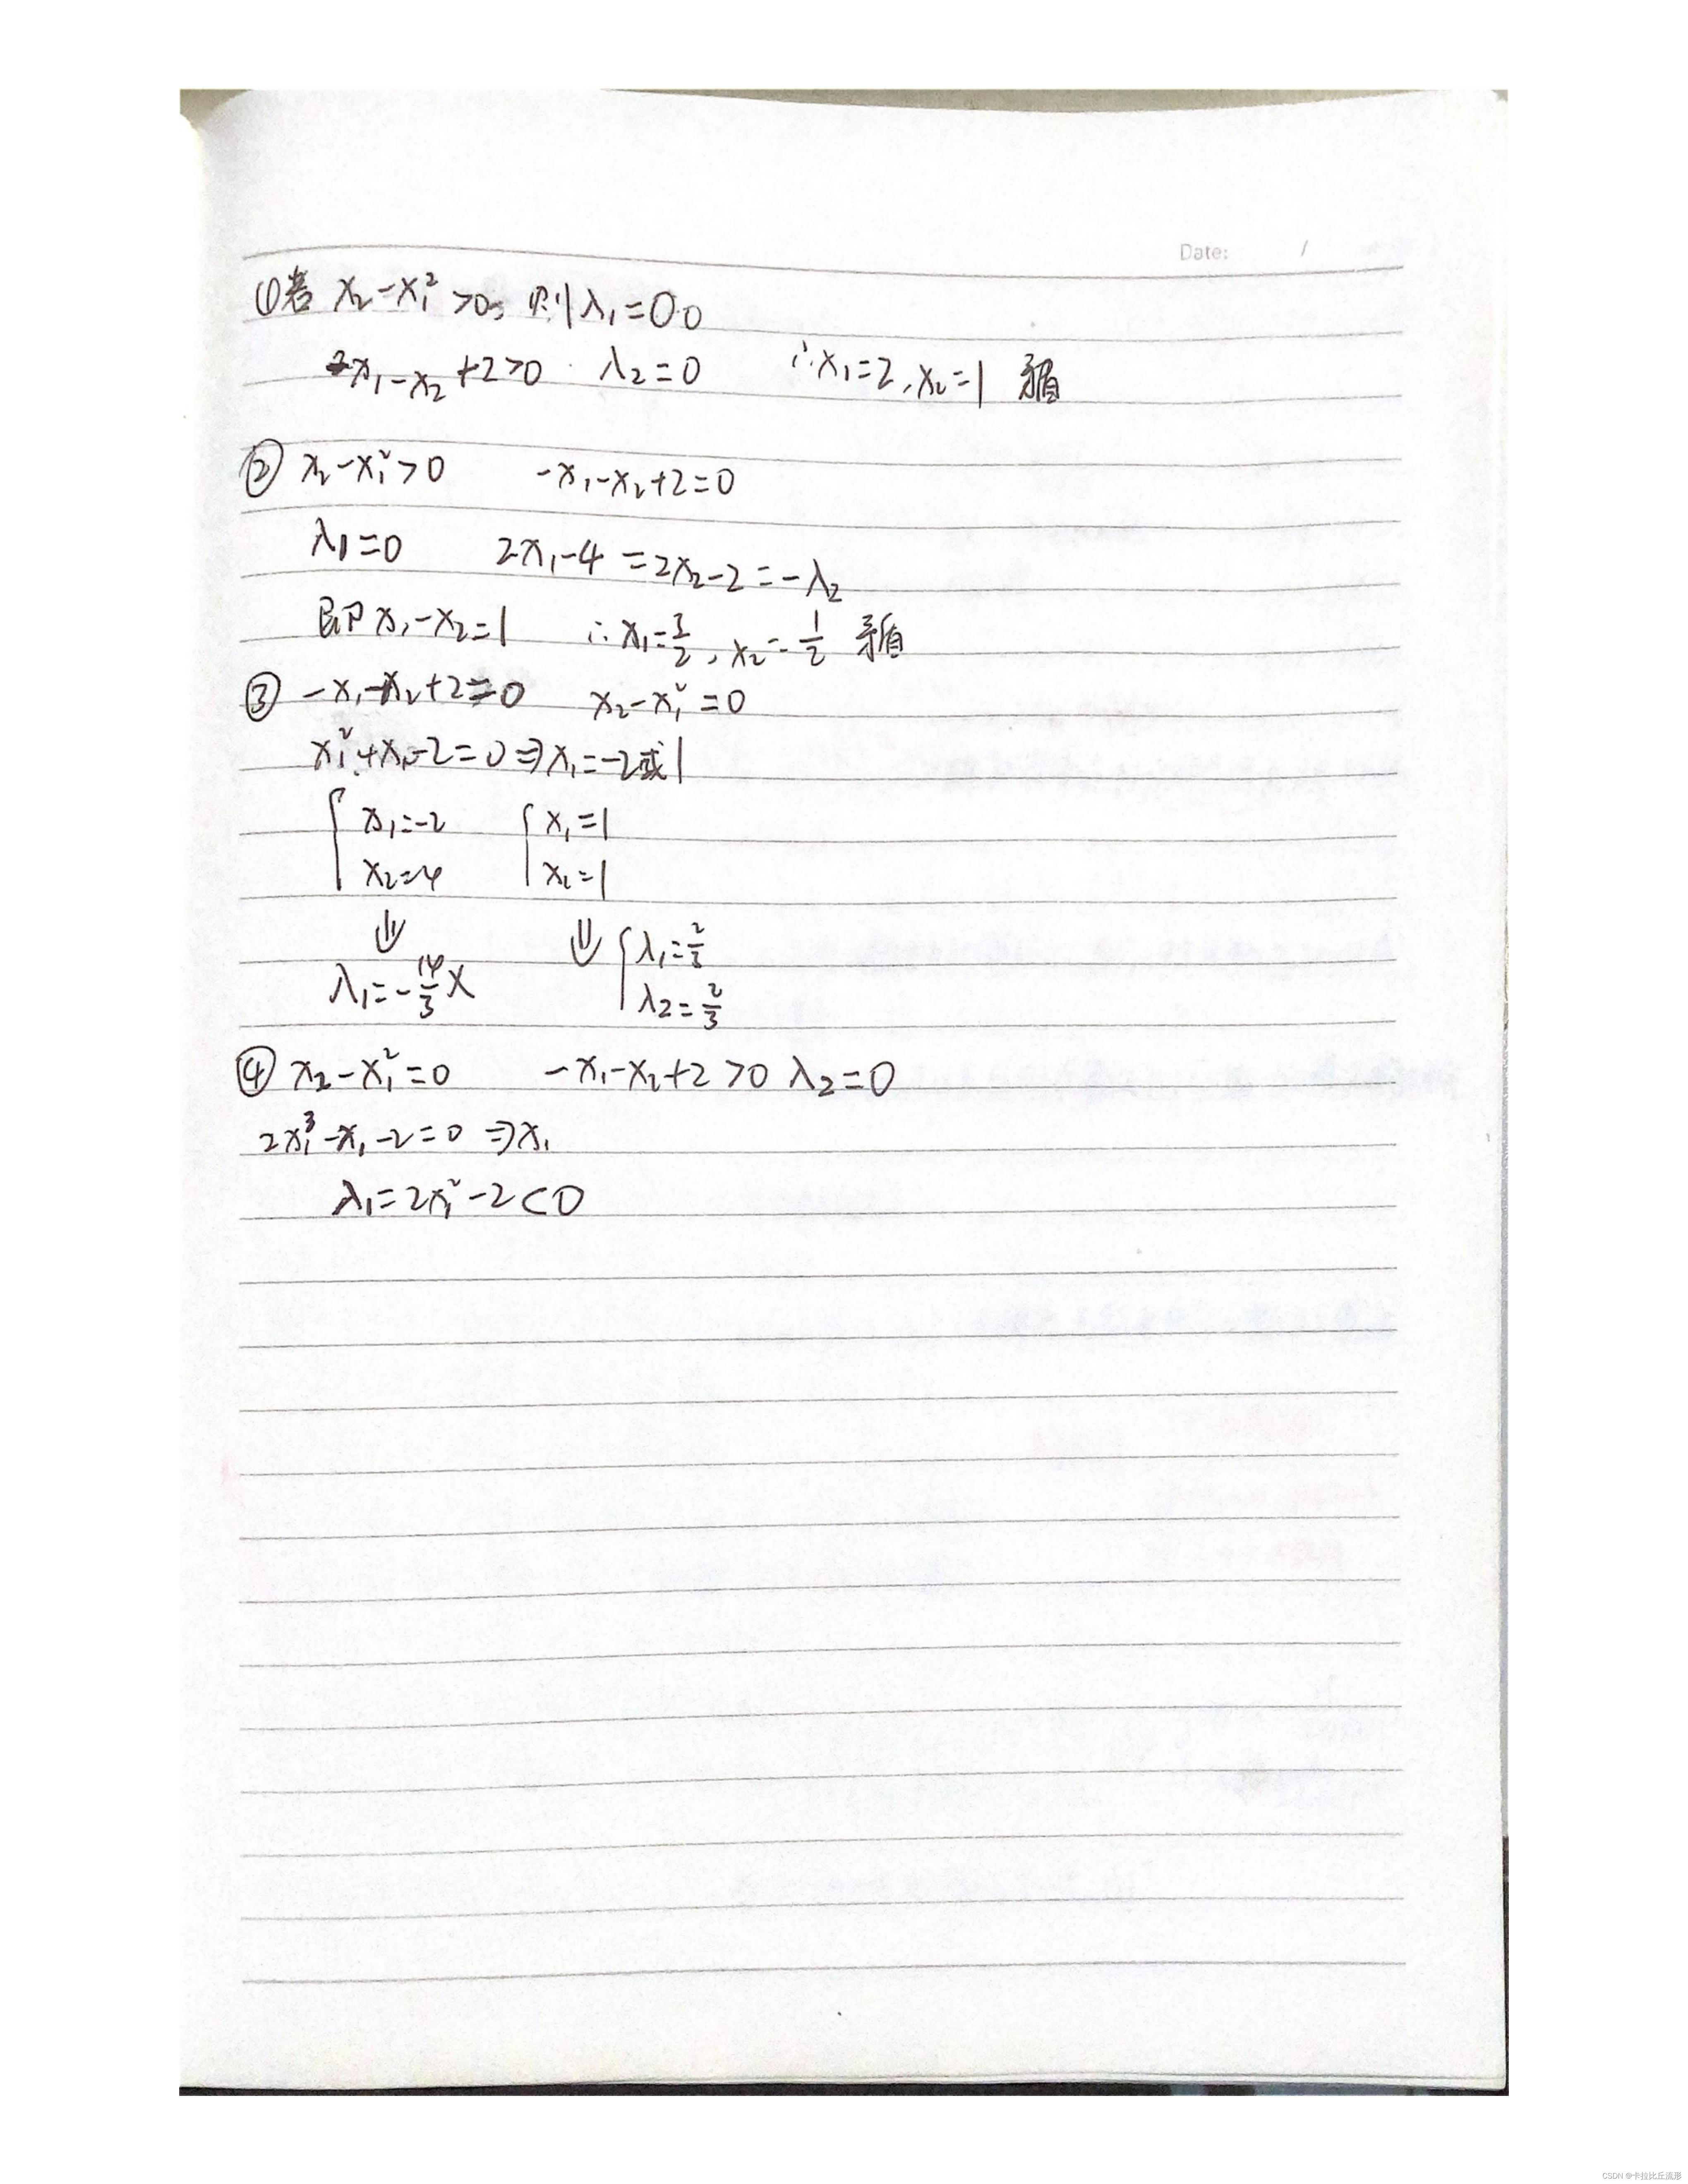 Date: /
①若 x₂-x₁²>0, 则λ₁=0
-x₁-x₂+2>0 λ₂=0 ∴x₁=2,x₂=1 矛盾
② x₂-x₁²>0 -x₁-x₂+2=0
λ₁=0 2x₁-4=2x₂-2=-λ₂
即 x₁-x₂=1 ∴x₁=3/2,x₂=1/2 矛盾
③ -x₁-x₂+2=0 x₂-x₁²=0
x₁²+x₁-2=0⇒x₁=-2或1
{ x₁=-2 { x₁=1
x₂=4 x₂=1
⇓ ⇓ { λ₁=2/3
λ₁=-14/3 X λ₂=2/3
④ x₂-x₁²=0 -x₁-x₂+2>0 λ₂=0
2x₁³-x₁-2=0 ⇒x₁
λ₁=2x₁²-2<0
CSDN @卡拉比丘流形